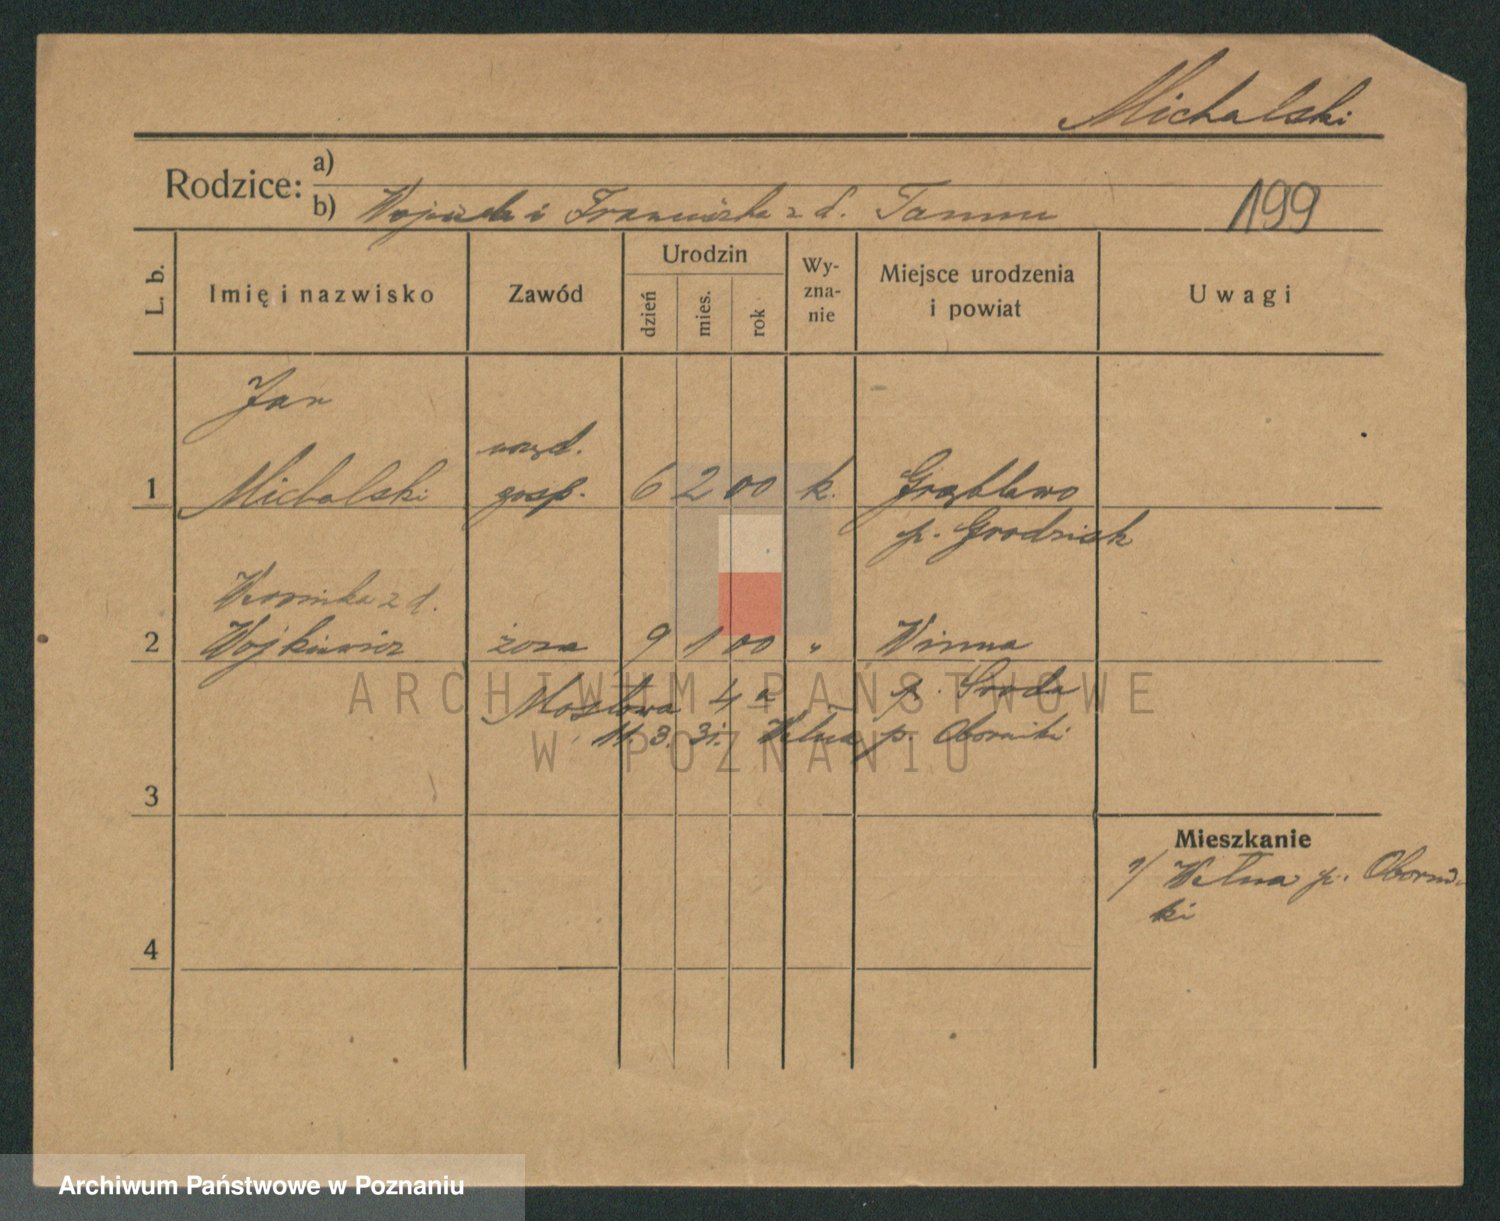 Michalski
Rodzice: a)
b) Wojciech i Franciszka z d.
199
L. b.
Imię i nazwisko
Zawód
Urodzin
dzień
mies.
rok
Wy-
zna-
nie
Miejsce urodzenia
i powiat
Uwagi
Jan
1 Michalski urzęd. gosp. 6 2 00 k. Grąblewo
p. Grodzisk
Weronika z d.
2 Wojkiewicz żona 9 1 00 " Winna
p. Środa
Mostowa 4 a
11. 3. 31. Wełna p. Oborniki
3
4
Mieszkanie
Wełna p. Oborni-
ki
ARCHIWUM PAŃSTWOWE
W POZNANIU
Archiwum Państwowe w Poznaniu